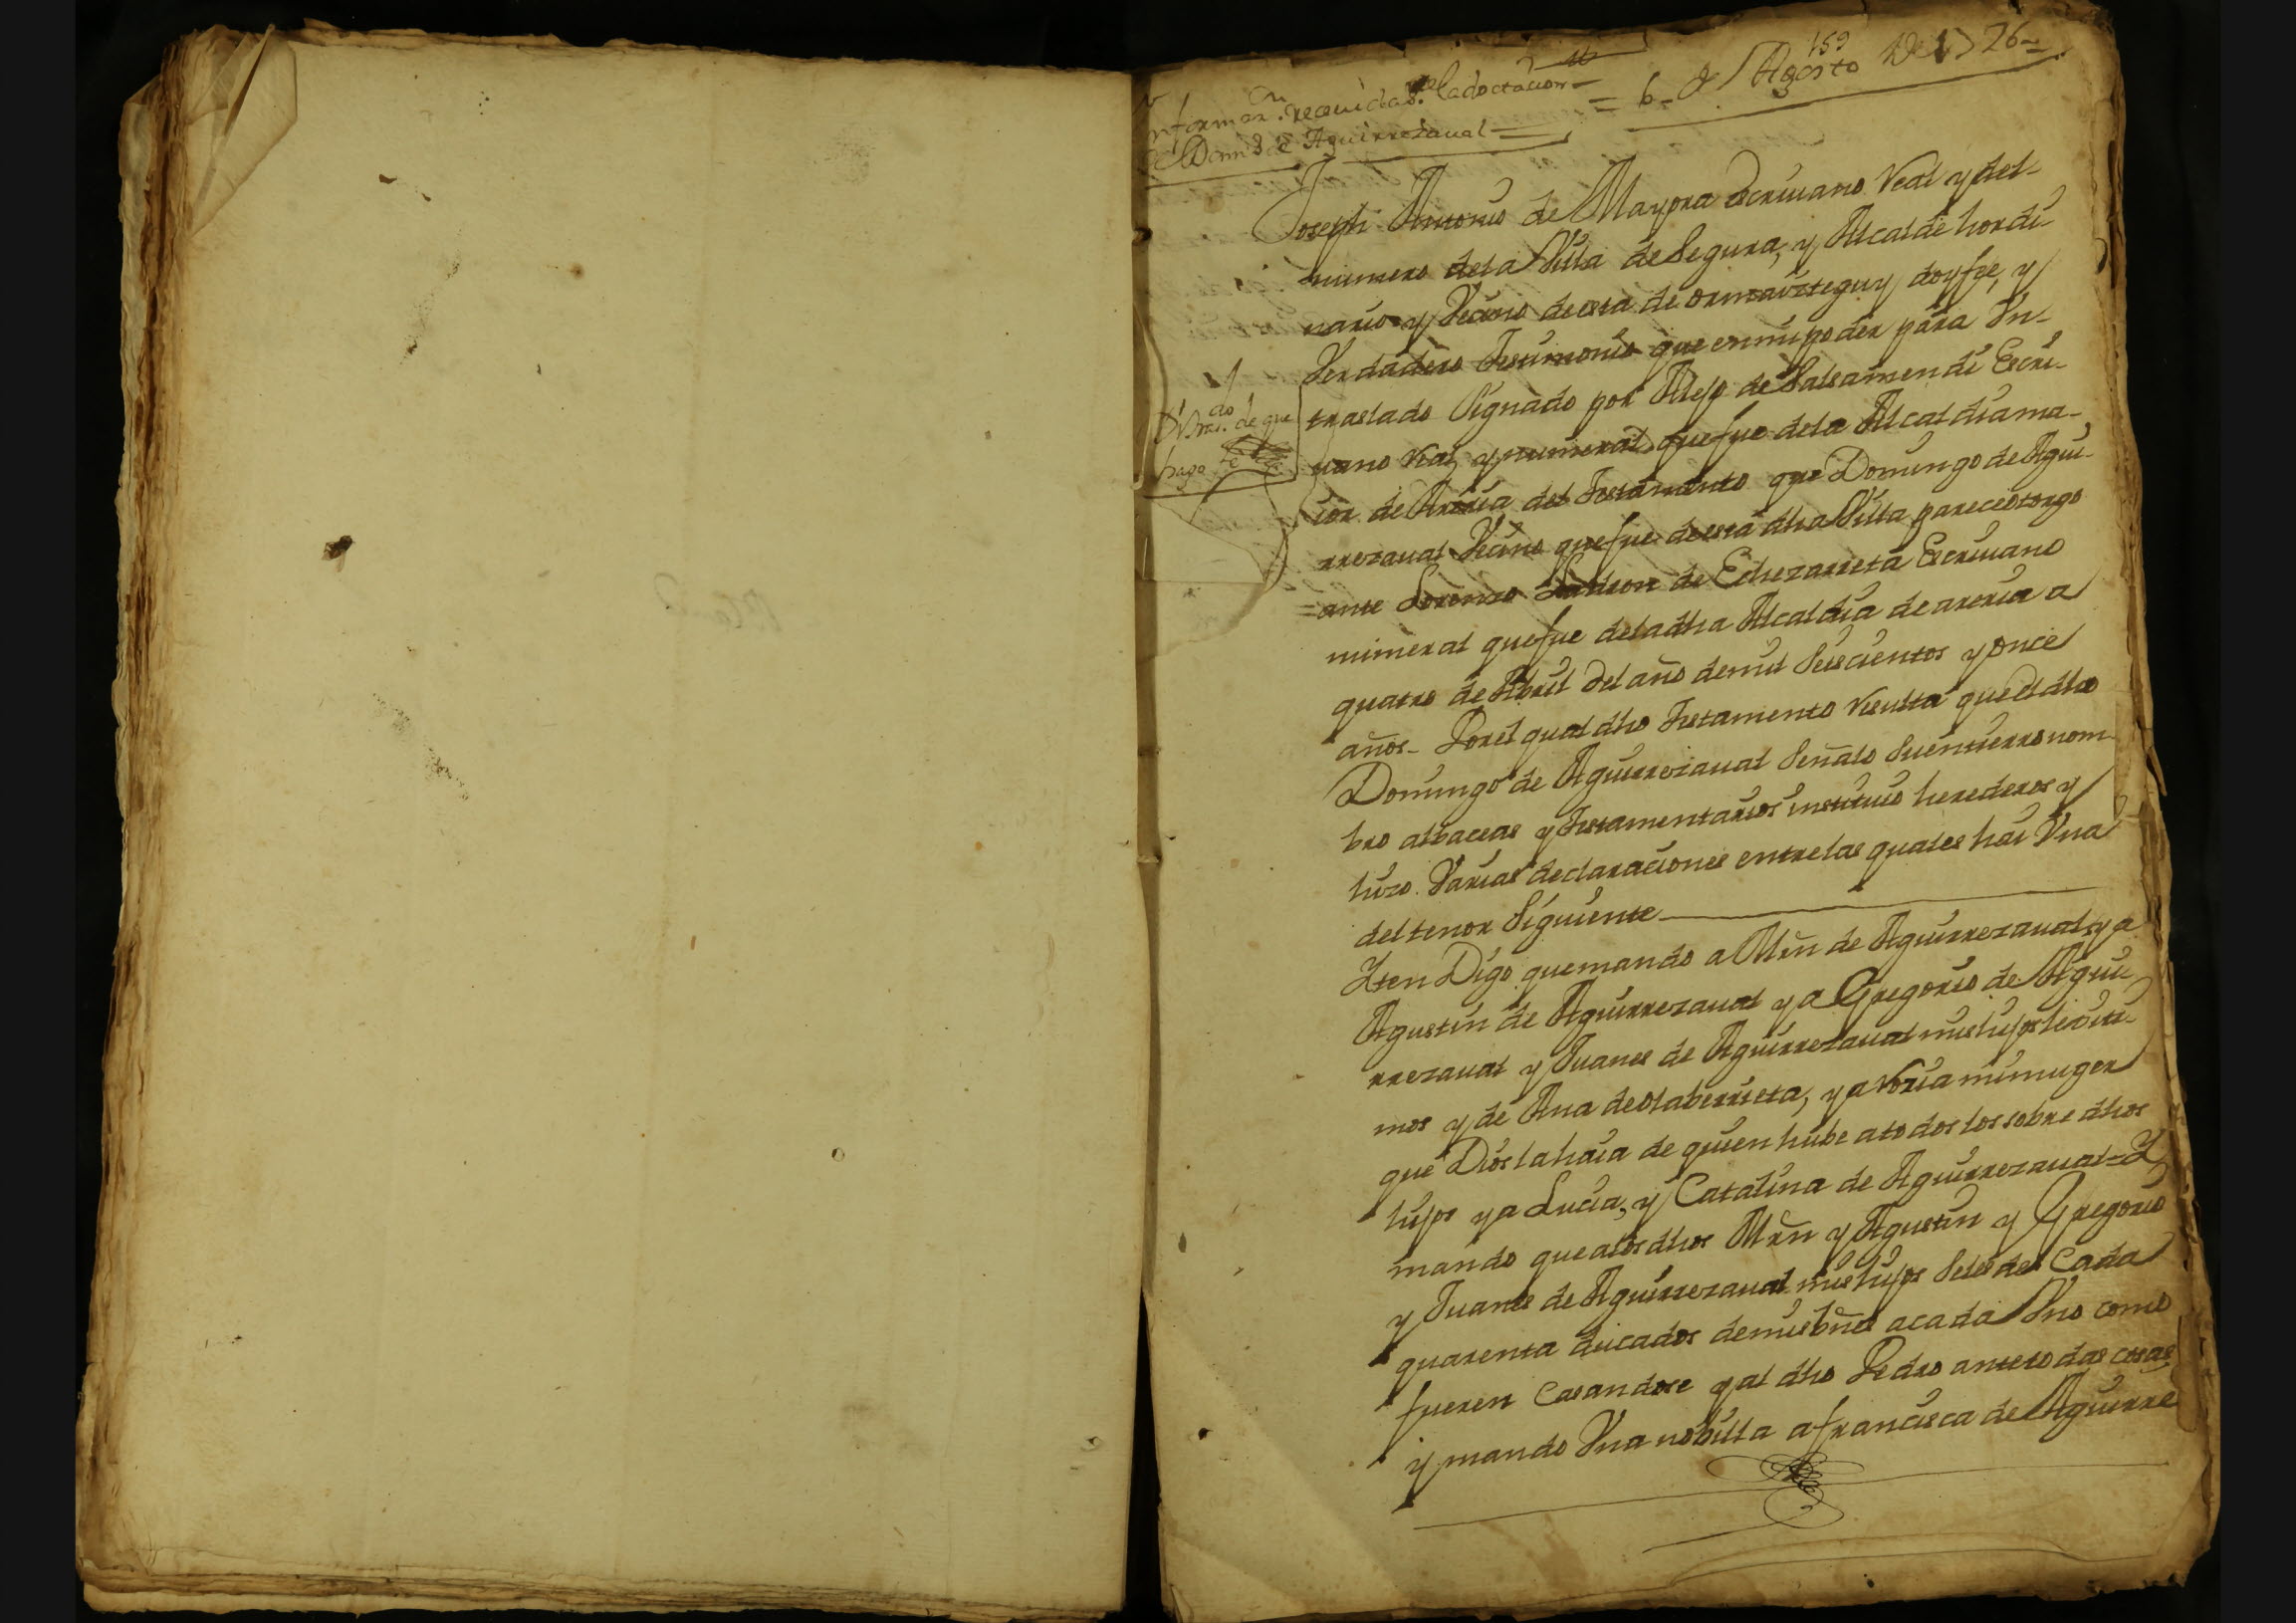 159
Informaon. recevida de la doctacion = 6 de Agosto De 1726 =
de Domo de Aguirrezaual =
Joseph Antonio de Mayora Escriuano Real y del
numero dela Villa de Segura, y Alcalde hordi-
nario y Vecino de esta de ormaizteguy doyfee, y
Verdadero Testimonio que en mi poder para Un-
traslado Signado por Alejo de Salsamendi Escri-
uano Real, y numeral que fue dela Alcaldia ma-
ior de Areria del Testamento que Domingo de Agui-
rrezaual Vecino que fue de esta dha Villa parece otorgo
=ante Lorenzo Ladron de Echezarreta Escriuano
numeral que fue dela dha Alcaldia de areria a
quatro de Abril del año de mil Seiscientos y once
años- Por el qual dho Testamento Resulta que el dho
Domingo de Aguirrezaual Señalo Su entierro nom-
bro albaceas y Testamentarios instituio herederos y
hizo Varias declaraciones entre las quales hai Una
del tenor Siguiente
Iten Digo que mando a Mrn de Aguirrezaual, y a
Agustin de Aguirrezaual y a Gregorio de Agui-
rrezaual y Juanes de Aguirrezaual mis hijos lexiti-
mos y de Ana de olaberrieta, ya mi muger
que Dios la haia de quien hube a todos los sobre dhos
hijos y a Lucia, y Catalina de Aguirrezaual = Y
mando que a los dhos Mrn y Agustin y Gregorio
y Juanes de Aguirrezaual mis hijos Seles de Cada
quarenta ducados de mis bñes a cada Uno como
fueren Casandose y al dho Pedro ante todas cosas
y mando Una nobilla a francisca de Aguirre
do
de que
hago fe